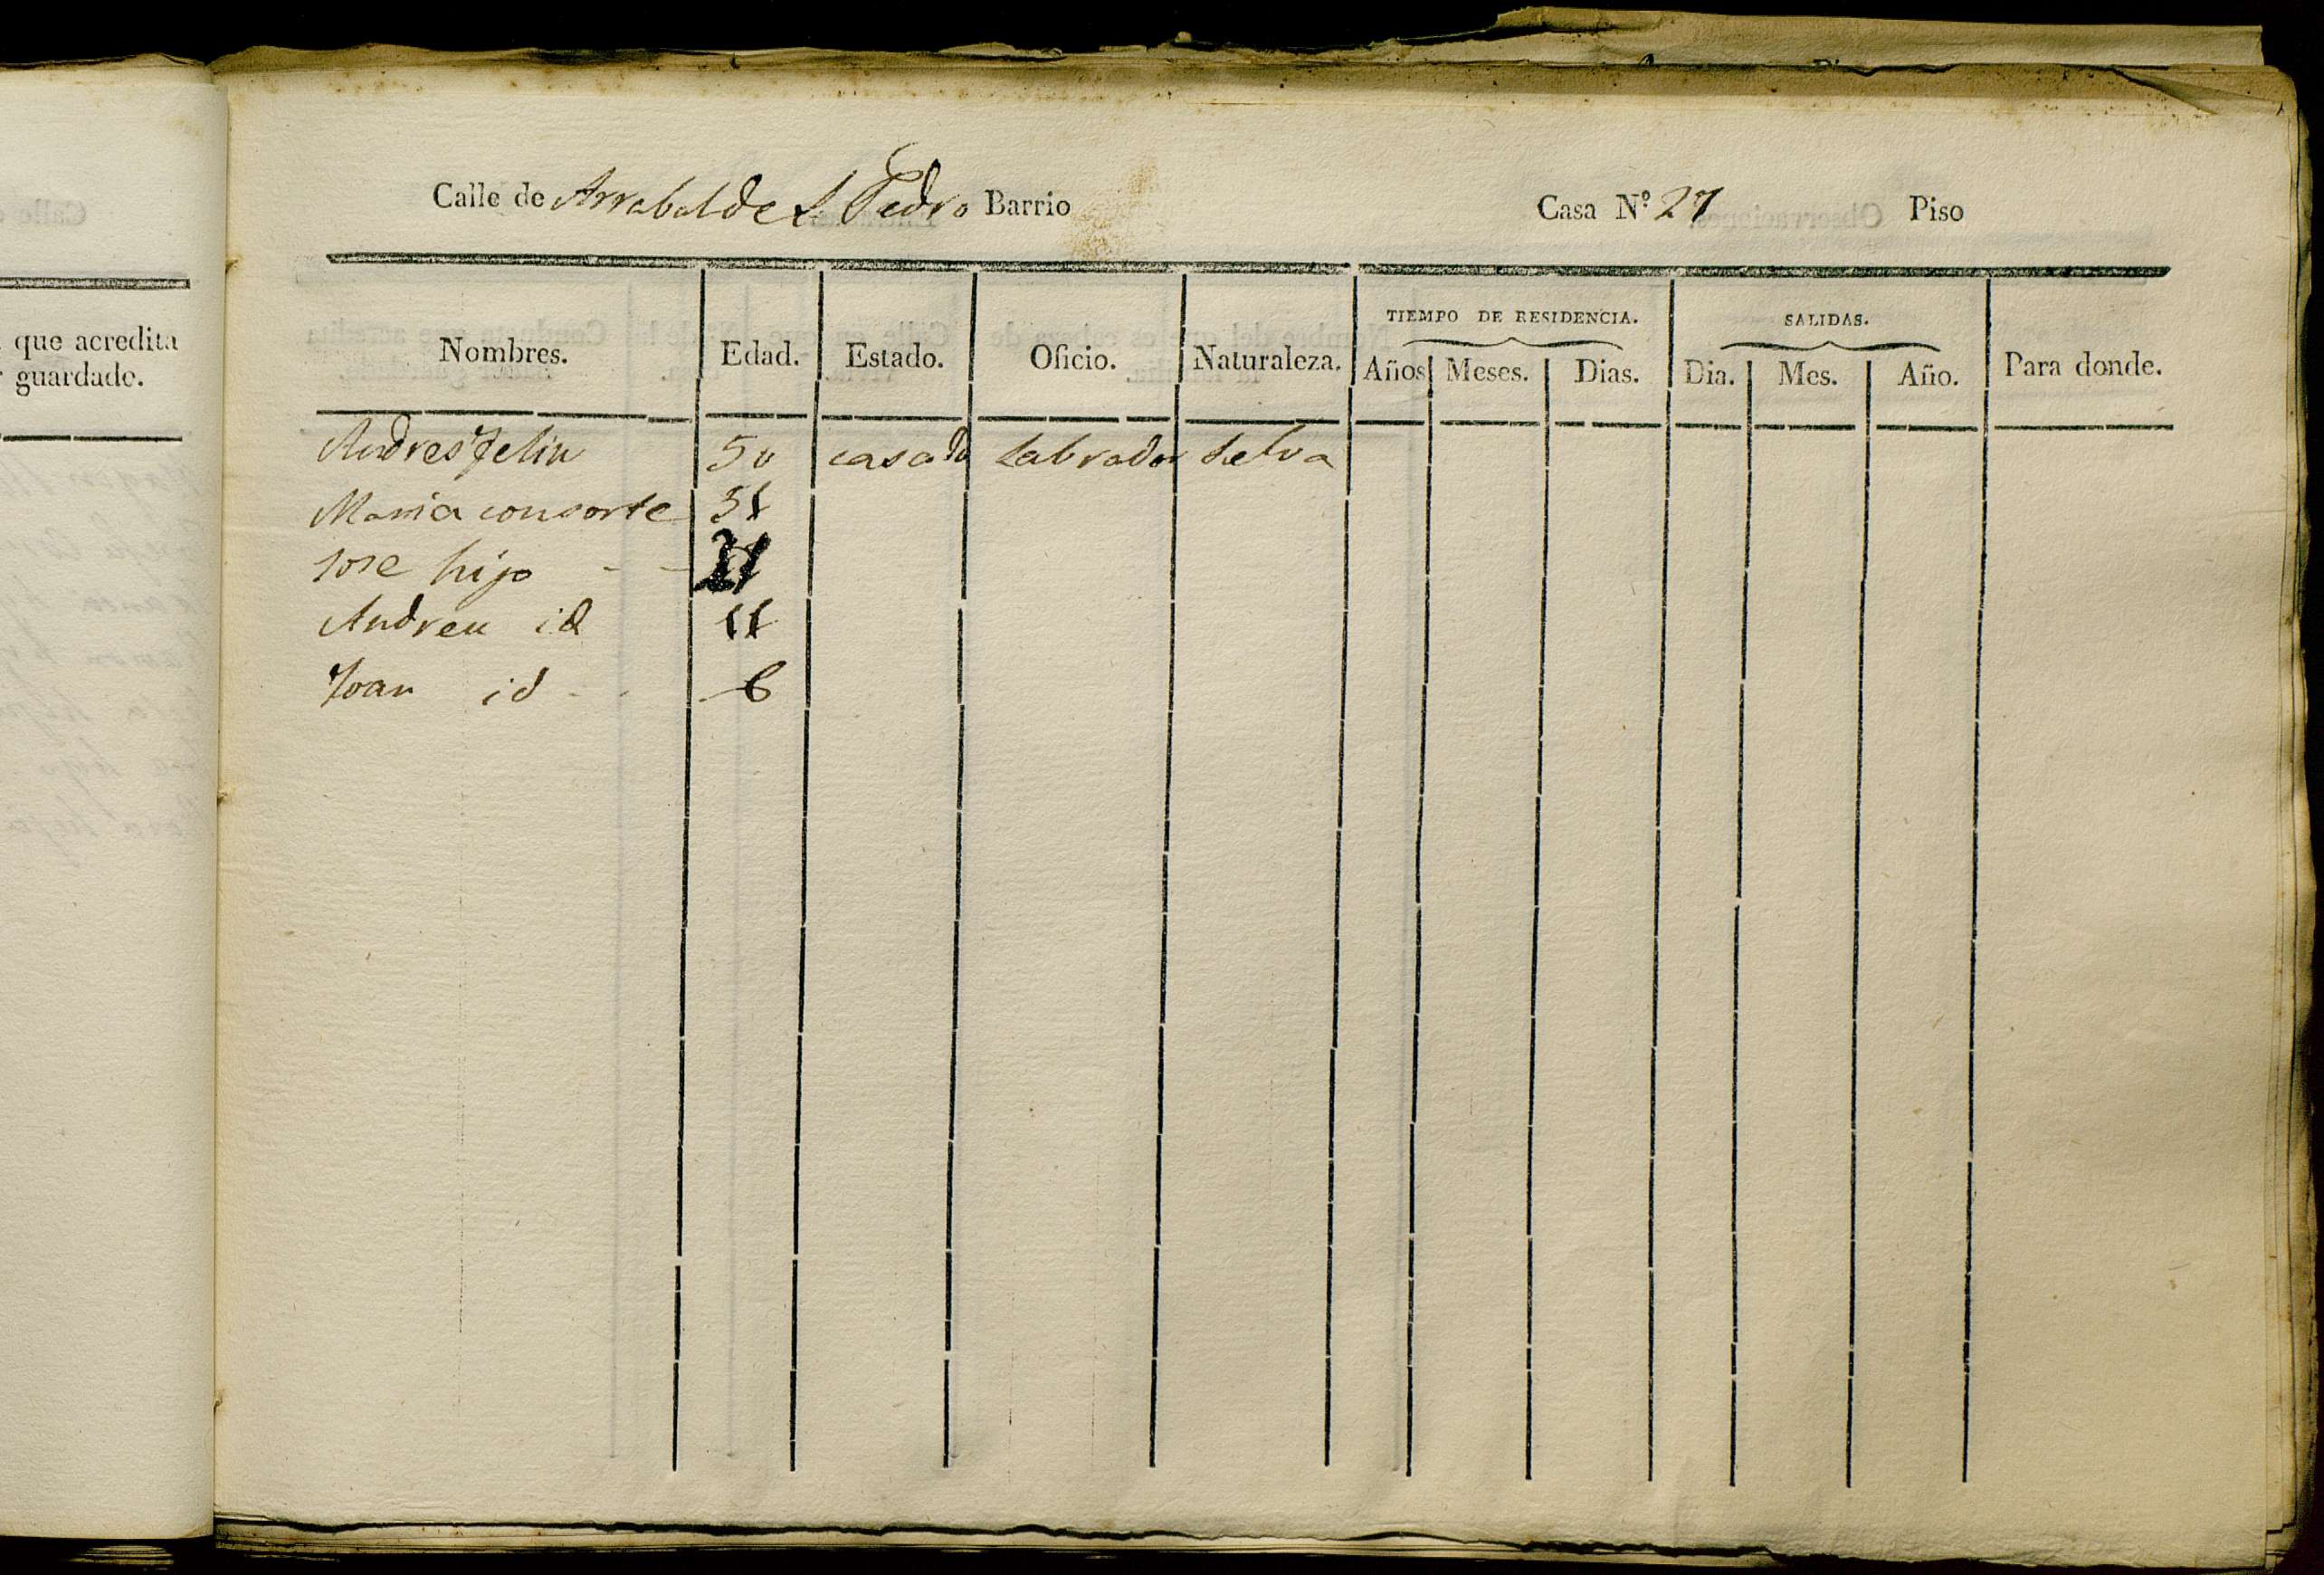 que acredita
guardado.
Calle de Arrabal de S Pedro Barrio Casa Nº 27 Piso
TIEMPO DE RESIDENCIA. SALIDAS.
Nombres. Edad. Estado. Oficio. Naturaleza. Años Meses. Dias. Dia. Mes. Año. Para donde.
Andres Feliu 50 casado Labrador Selva
Maria consorte 51
Jose hijo 21
Andreu id 11
Joan id 6